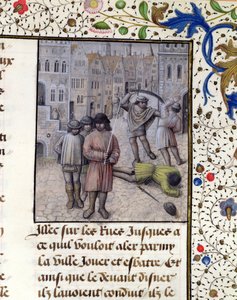 Illec sur les Rues Jusques a
ce quil vouloit aler parmy
la ville Jouer et esbatre. Et
ainsi que le deuant disner
ilz lauoient conduit ilz le